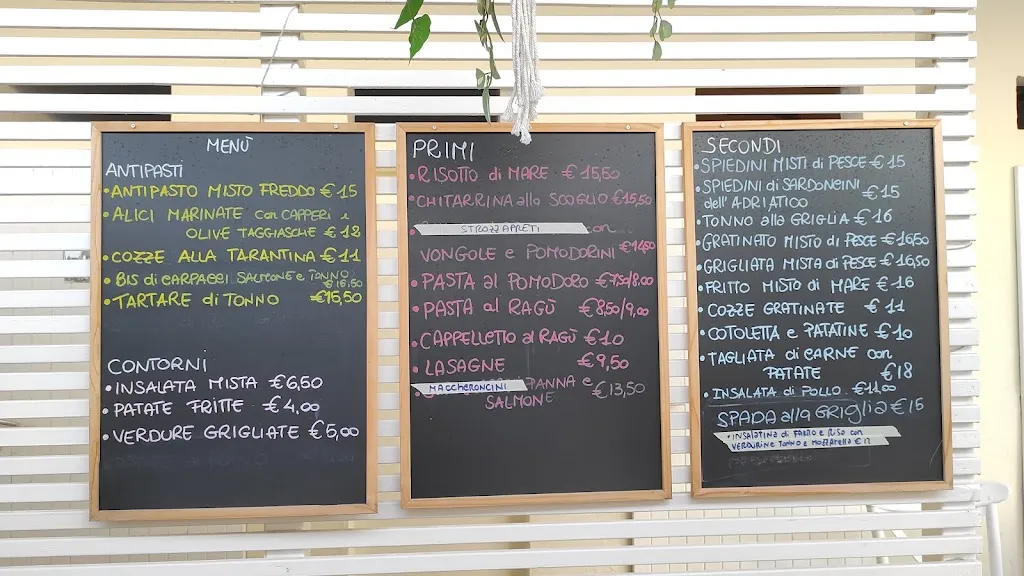 MENÙ
ANTIPASTI
•ANTIPASTO MISTO FREDDO €15
•ALICI MARINATE con CAPPERI e
OLIVE TAGGIASCHE €12
•COZZE ALLA TARANTINA €11
•BIS di CARPACCI SALMONE e TONNO
€16,50
•TARTARE di TONNO €15,50
CONTORNI
•INSALATA MISTA €6,50
•PATATE FRITTE €4,00
•VERDURE GRIGLIATE €5,00
PRIMI
•RISOTTO di MARE €15,50
•CHITARRINA allo SCOGLIO €15,50
• STROZZAPRETI con
VONGOLE e POMODORINI €14,50
•PASTA al POMODORO €7,50/8,00
•PASTA al RAGÙ €8,50/9,00
•CAPPELLETTO al RAGÙ €10
•LASAGNE €9,50
MACCHERONCINI PANNA e
SALMONE €13,50
SECONDI
•SPIEDINI MISTI di PESCE €15
•SPIEDINI di SARDONCINI
dell'ADRIATICO €15
•TONNO alla GRIGLIA €16
•GRATINATO MISTO di PESCE €16,50
•GRIGLIATA MISTA di PESCE €16,50
•FRITTO MISTO di MARE €16
•COZZE GRATINATE €11
•COTOLETTA e PATATINE €10
•TAGLIATA di CARNE con
PATATE €18
•INSALATA di POLLO €11,00
SPADA alla GRIGLIA €15
•INSALATINA di FARRO e RISO con
VERDURINE TONNO e MOZZARELLA €